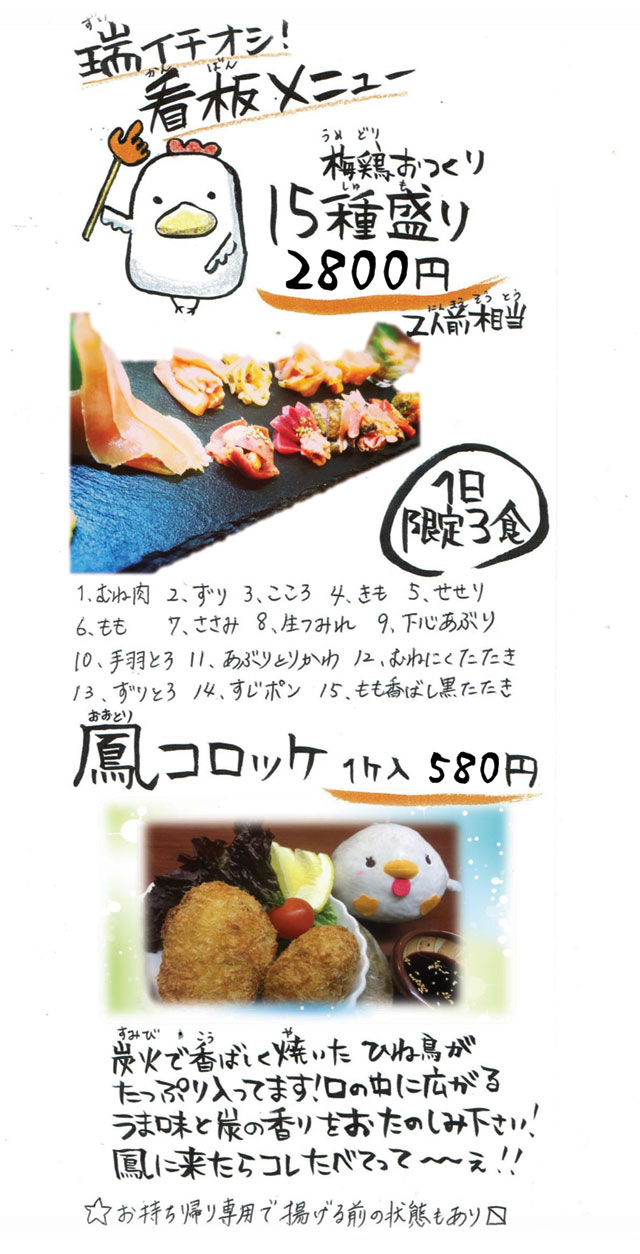 ずい
瑞イチオシ!
かん ばん
看板メニュー
うめ どり
梅鶏おつくり
しゅ も
15種盛り
2800円
にんまえそうとう
2人前相当
1日
限定3食
1、むね肉 2、ずり 3、こころ 4、きも 5、せせり
6、もも 7、ささみ 8、生つみれ 9、下心あぶり
10、手羽とろ 11、あぶりとりかわ 12、むねにくたたき
13、ずりとろ 14、すじポン 15、もも香ばし黒たたき
おおとり
鳳コロッケ 1ケ入 580円
すみび こう や
炭火で香ばしく焼いた ひね鳥が
たっぷり入ってます!口の中に広がる
うま味と炭の香りをおたのしみ下さい!
鳳に来たらコレたべてって〜〜ぇ!!
☆お持ち帰り専用で揚げる前の状態もあり〼